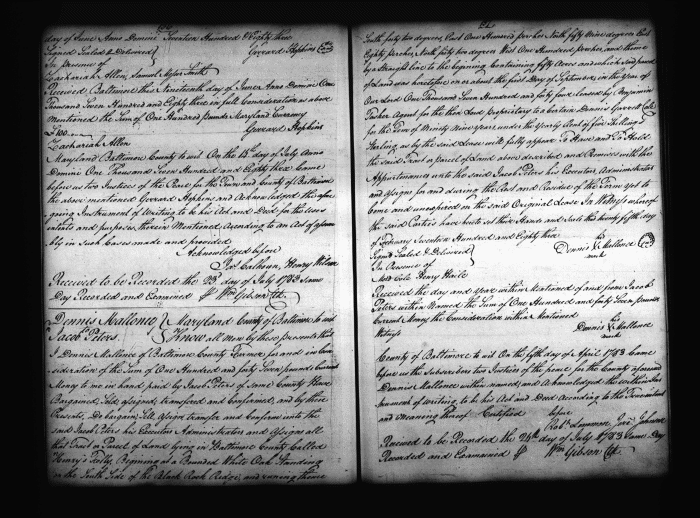 day of June Anno Domini Seventeen Hundred & Eighty three
Signed Sealed & Delivered Gerrard Hopkins
In presence of
Zachariah Allen, Samuel Smith
Received Baltimore this Nineteenth day of June Anno Domini One
Thousand Seven Hundred and Eighty three in full Consideration as above
Mentioned the Sum of One Hundred pounds Maryland Currency
£100 Gerrard Hopkins
Zachariah Allen
Maryland Baltimore County to wit On the 15th day of July Anno
Domini One Thousand Seven Hundred and Eighty three Came
before us two Justices of the Peace for the Town and County of Baltimore
the above mentioned Gerrard Hopkins and Acknowledged the afore
going Instrument of Writing to be his Act and Deed for the Uses
intents and purposes therein Mentioned According to an Act of Assem
bly in such Cases made and provided
Acknowledged before
Jas Calhoun, Henry Wilson
Received to be Recorded the 23d day of July 1783 Same
Day Recorded and Examined Wm Gibson Clk
Dennis Mallonee Maryland County of Baltimore to wit
Jacob Peters. Know all men by these presents that
I Dennis Mallonee of Baltimore County Farmer for and in Con
sideration of the Sum of One Hundred and forty Seven pounds Current
Money to me in hand paid by Jacob Peters of Same County Have
Bargained Sold assigned transfered and Confirmed, and by these
Presents, Do bargain Sell Assign transfer and Confirm unto the
said Jacob Peters his Executors Administrators and Assigns all
that Tract or Parcel of Land lying in Baltimore County Called
Henry's Folly Begining at a Bounded White Oak Standing
on the South Side of the Black Rock Ridge, and runing thence
South forty two degrees, East One Hundred perches North fifty Nine degrees East
Eighty perches, North forty two degrees West One Hundred perches, and thence
by a Straight line to the begining Containing fifty Acres and which said parcel
of Land was heretofore on or about the first Day of September in the Year of
Our Lord One Thousand Seven Hundred and forty four leased by Benjamin
Tasker Agent for the then Lord Proprietary to a Certain Dennis Garrett Cole
for the Term of Ninety Nine Years under the Yearly Rent of five Shillings
Sterling as by the said Lease will fully appear To Have and To Hold
the said Tract or parcel of Land above described and Premises with the
Appurtenances unto the said Jacob Peters his Executors, Administrators
and Assigns for and during the Rest and Residue of the Term Yet to
Come and unexpired in the said Original Lease In Witness whereof
the said Parties have hereto set their Hands and Seals this twenty fifth day
of February Seventeen Hundred and Eighty three
Signed Sealed & Delivered his
In Presence of Dennis Mallonee
Henry Howle mark
Received the day and year within Mentioned of and from Jacob
Peters within Named the Sum of One Hundred and forty Seven pounds
Current Money the Consideration within Mentioned
Witness his
Dennis Mallonee
mark
County of Baltimore to wit On the fifth day of April 1783 Came
before us the Subscribers two Justices of the peace for the County aforesaid
Dennis Mallonee within named, and Acknowledged the within Ins
trument of writing to be his Act and Deed According to the True intent
and meaning thereof Certified before
Robt Lemmon, Jere Johnson
Received to be Recorded the 26th day of July 1783 Same Day
Recorded and Examined Wm Gibson Clk